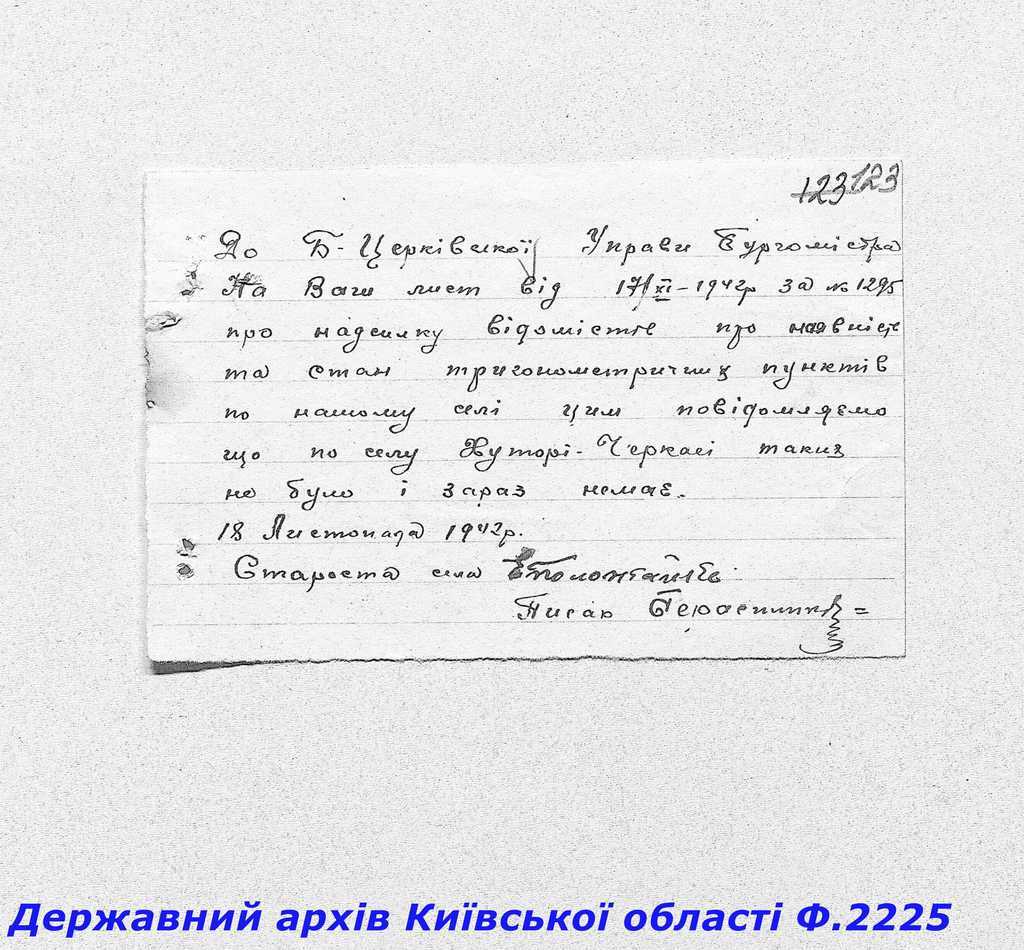 123 123
До Б-Церківської Управи Бургомістра
На Ваш лист від 17/XI-1942р за № 1295
про надсилку відомістів про наявність
та стан тригонометричних пунктів
по нашому селі цим повідомляємо
що по селу Хуторі-Черкасі таких
не було і зараз немає.
18 Листопада 1942р.
Староста села
Писар
Державний архів Київської області Ф.2225